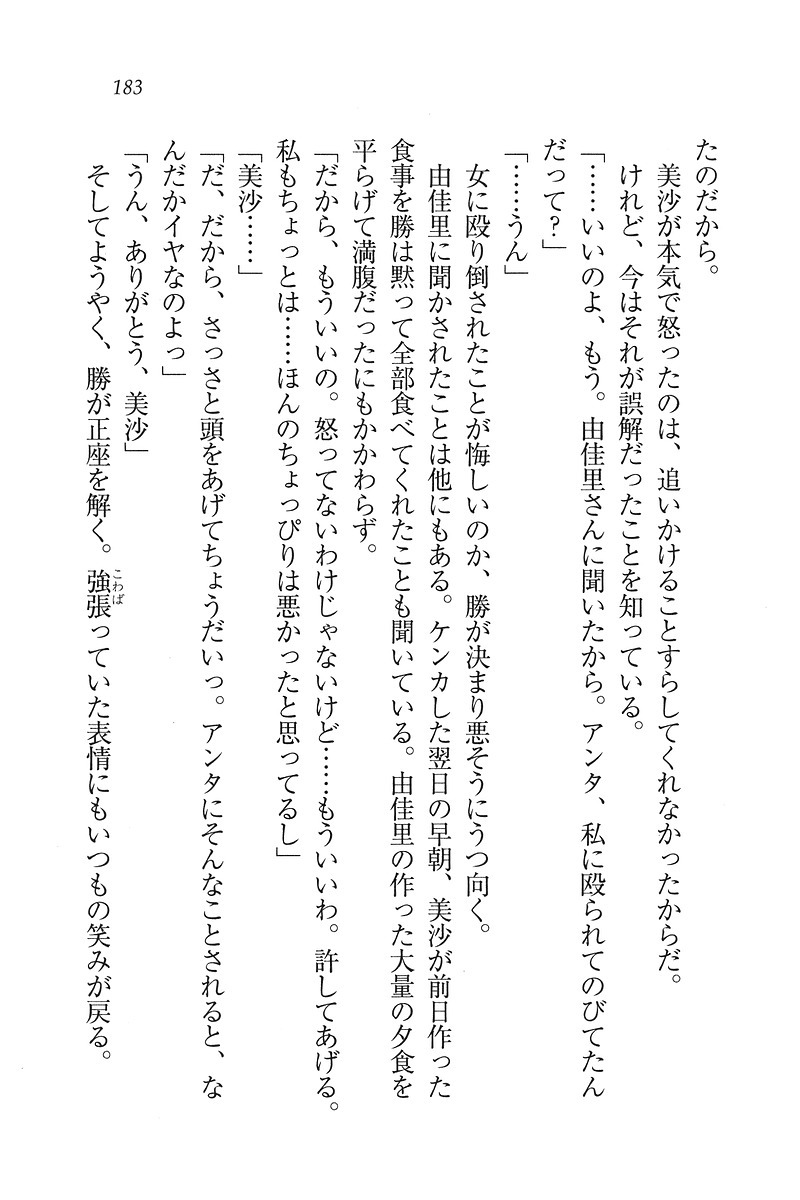 183
たのだから。
美沙が本気で怒ったのは、追いかけることすらしてくれなかったからだ。
けれど、今はそれが誤解だったことを知っている。
「……いいのよ、もう。由佳里さんに聞いたから。アンタ、私に殴られてのびてたん
だって？」
「……うん」
女に殴り倒されたことが悔しいのか、勝が決まり悪そうにうつ向く。
由佳里に聞かされたことは他にもある。ケンカした翌日の早朝、美沙が前日作った
食事を勝は黙って全部食べてくれたことも聞いている。由佳里の作った大量の夕食を
平らげて満腹だったにもかかわらず。
「だから、もういいの。怒ってないわけじゃないけど……もういいわ。許してあげる。
私もちょっとは……ほんのちょっぴりは悪かったと思ってるし」
「美沙……」
「だ、だから、さっさと頭をあげてちょうだいっ。アンタにそんなことされると、な
んだかイヤなのよっ」
「うん、ありがとう、美沙」
そしてようやく、勝が正座を解く。強張っていた表情にもいつもの笑みが戻る。
こわば